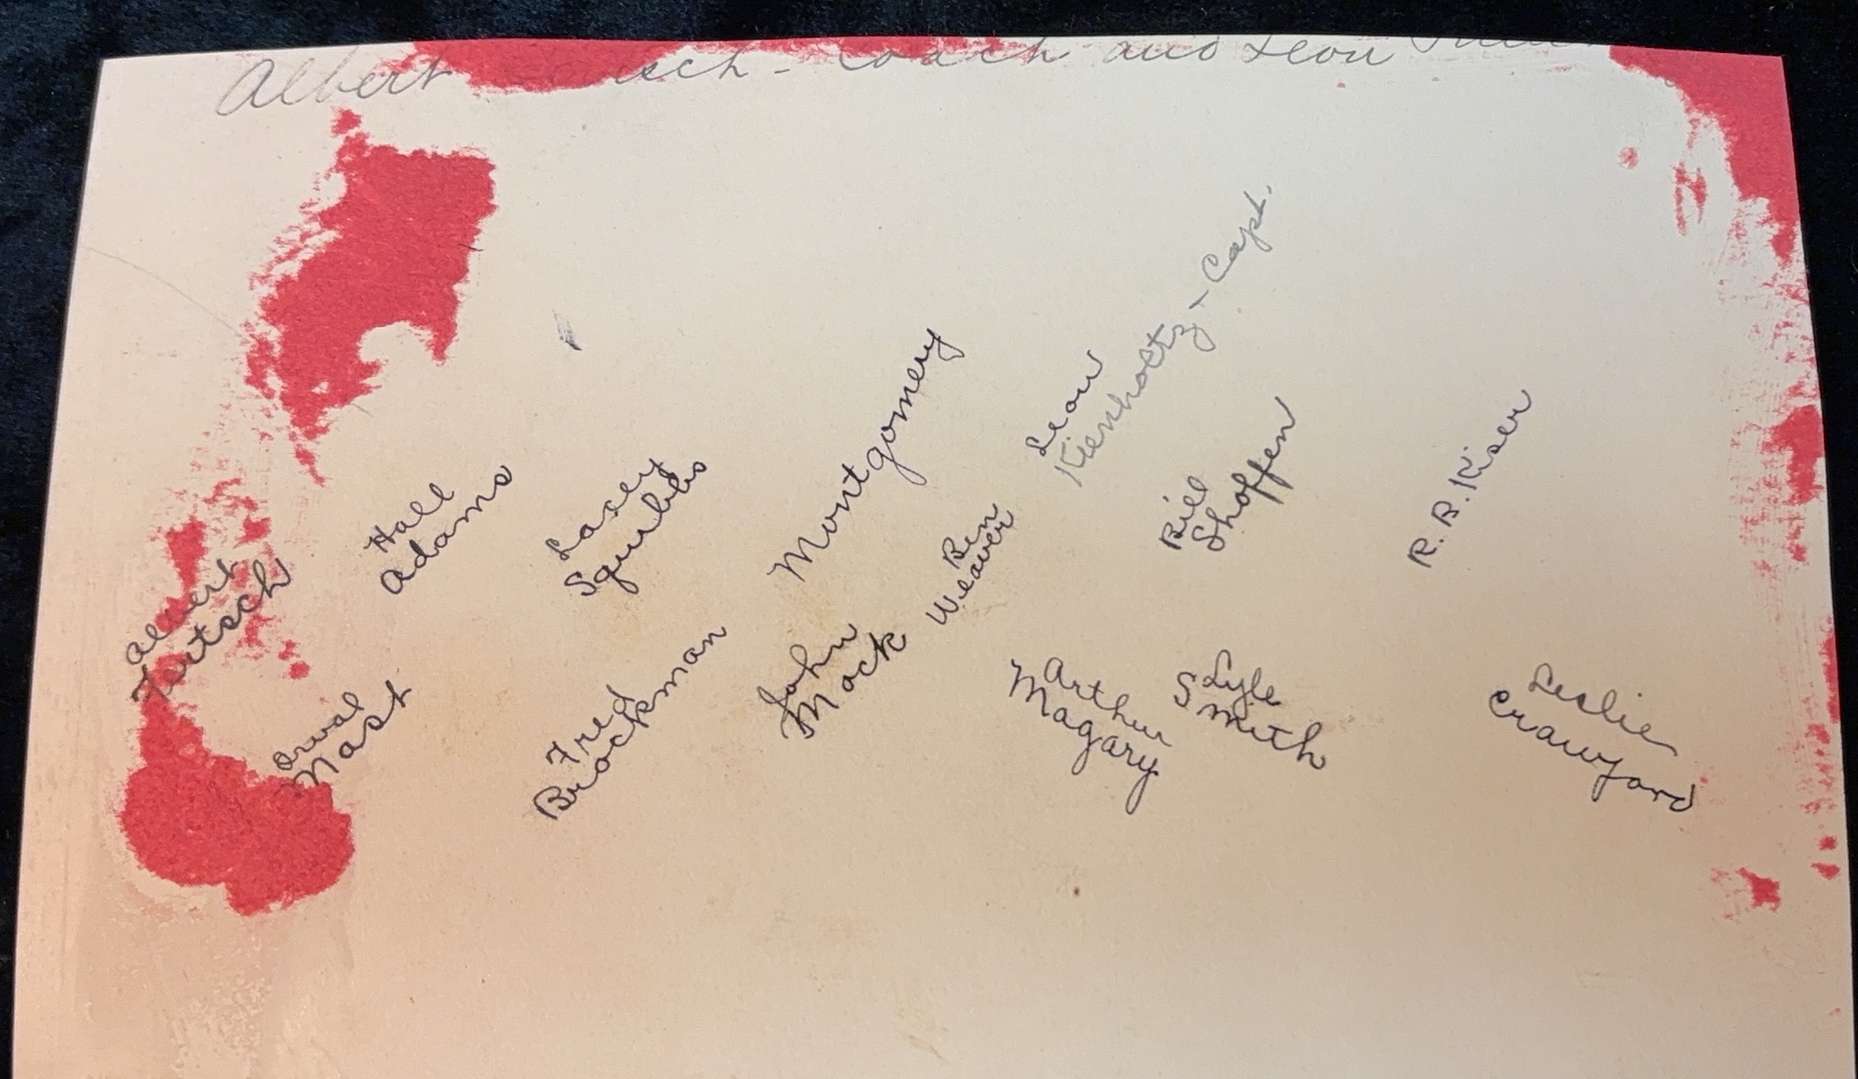 Albert - Coach and Leon
Leon
Kienholtz - Capt.
Hall
Adams
Lacey
Squibbs
Montgomery
Ben
Weaver
Bill
Shoffen
R. B. Kiser
Albert
Tertsch
Orval
Nast
Fred
Brockman
John
Mock
Arthur
Magary
Lyle
Smith
Leslie
Crawford